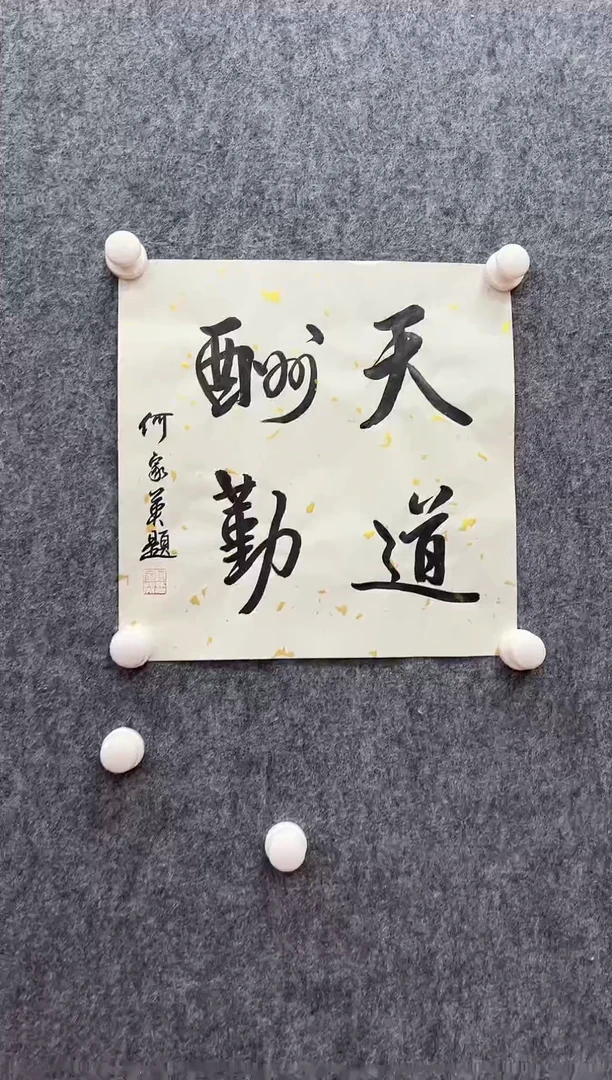 天道
酬勤
何家英题